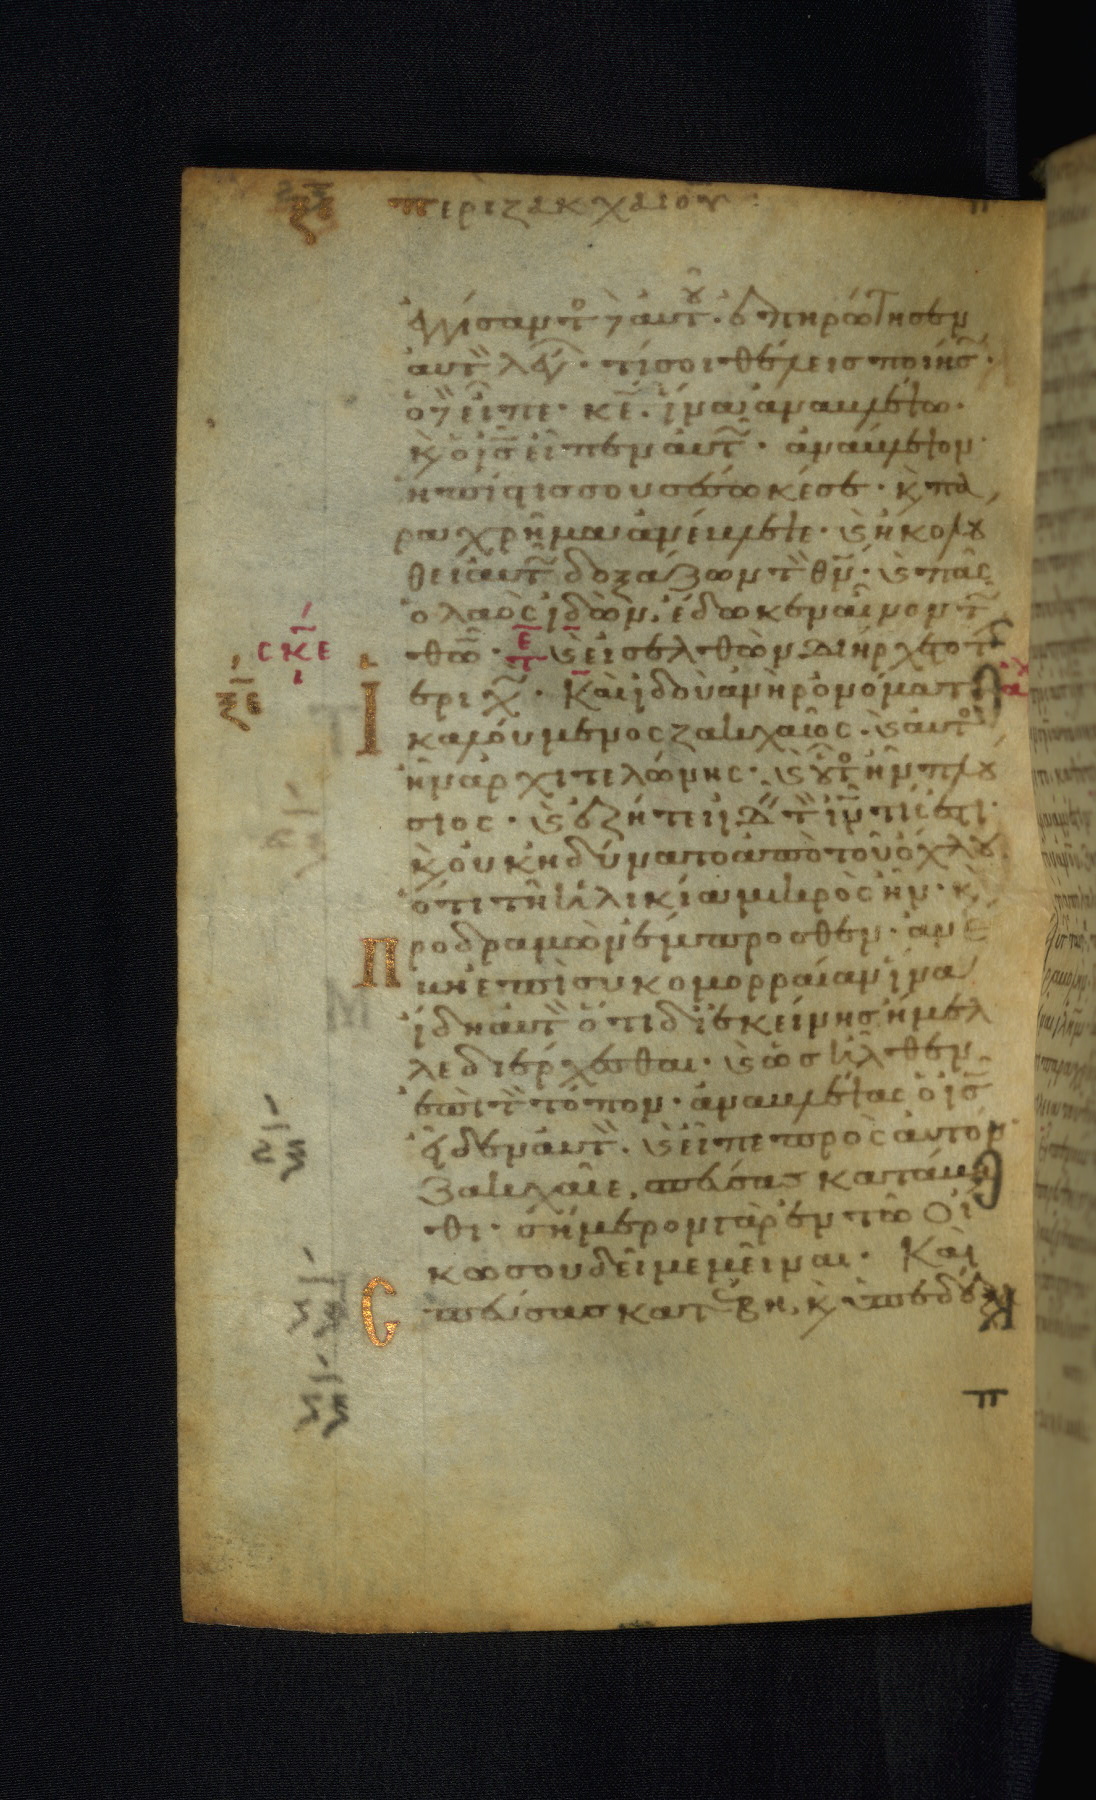 περι ζακχαιου
ἐγγίσαντος δὲ αὐτοῦ. ἐπηρώτησεν
αὐτὸν λέγων. τί σοι θέλεις ποιήσω.
ὁ δὲ εἶπε. κε. ἵνα ἀναβλέψω.
κ ὁ ις εἶπεν αὐτῷ. ἀνάβλεψον.
ἡ πίστις σου σέσωκέ σε. κ πα
ραχρῆμα ἀνέβλεψε. κ ἠκολου
θει αὐτῷ δοξάζων τὸν θν. κ πᾶς
ὁ λαὸς ἰδὼν, ἔδωκεν αἶνον τῷ
θῶ. κ εἰσελθὼν διήρχετο τὴν
ςκε
Ἱεριχώ. Καὶ ἰδοὺ ἀνὴρ ὀνόματι
καλούμενος ζακχαῖος. κ αὐτὸς
ἦν ἀρχιτελώνης. κ οὗτος ἦν πλου
σιος. κ ἐζήτει ἰδεῖν τὸν ιν τίς ἐστι.
κ οὐκ ἠδύνατο ἀπὸ τοῦ ὄχλου.
ὅτι τῇ ἡλικίᾳ μικρὸς ἦν. κ
Προδραμὼν ἔμπροσθεν. ἀνέ
βη ἐπὶ συκομορραίαν ἵνα
ἴδῃ αὐτὸν ὅτι δι ἐκείνης ἤμελ
λε διέρχεσθαι. κ ὡς ἦλθεν
ἐπὶ τὸν τόπον. ἀναβλέψας ὁ ις
εἶδεν αὐτὸν. κ εἶπε πρὸς αὐτόν
Ζακχαῖε, σπεύσας κατάβη
θι. σήμερον γὰρ ἐν τῷ οἴ
κω σου δεῖ με μεῖναι. Καὶ
Σπεύσας κατέβη, κ ὑπεδέξ